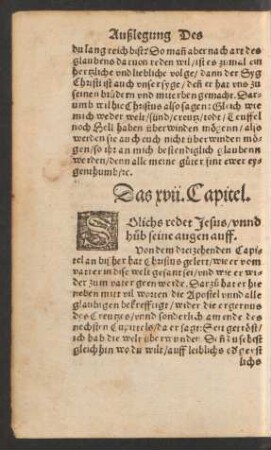 Außlegung Des
du lang reich bist? So mañ aber nach art des
glaubens daruon reden wil / ist es zumal ein
hertzliche vnd liebliche volge / dann der Syg
Christi ist auch vnser syge / deñ er hat vns zu
seinen brüdern vnd miterben gemacht. Dar-
umb wil hie Christus also sagen: Gleich wie
mich weder welt / sünd / creutz / todt / Teuffel
noch Hell haben überwinden mögenn / also
werden sie auch euch nicht überwinden mö-
gen / so jr an mich bestendiglich glaubenn
werden / denn alle meine güter sint ewer ey-
genthumb / ꝛc.
Das xvii. Capitel.
SOlichs redet Jesus / vnnd
hüb seine augen auff.
Von dem dreizehenden Capi-
tel an biß her hat Christus gelert / wie er vom
vatter in dise welt gesant sei / vnd wie er wi-
der zum vater geen werde. Darzů hat er hie
neben mit vil worten die Apostel vnnd alle
glaubigen bekrefftigt / wider die ergernus
des Creutzes / vnnd sonderlich am ende des
nechsten Capitels / da er sagt: Seit getröst /
ich hab die welt überwunden. Deñ
gleich hin wo du wilt / auff leiblichs
lichs